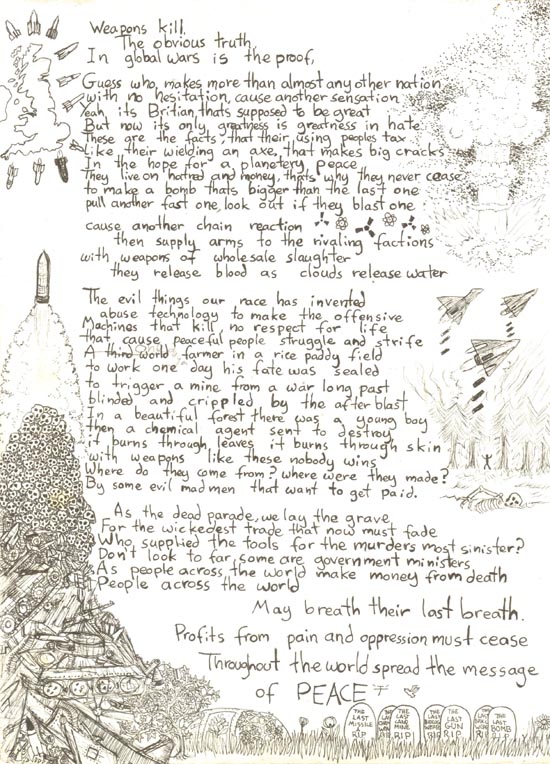 Weapons kill.
The obvious truth,
In global wars is the proof,
Guess who, makes more than almost any other nation
with no hesitation, cause another sensation
Yeah its Britian, thats supposed to be great
But now its only greatness is greatness in hate
These are the facts, that their using peoples tax
Like their wielding an axe, that makes big cracks
In the hope for a planetery peace
They live on hatred and money, thats why they never cease
to make a bomb thats bigger than the last one
pull another fast one, look out if they blast one
cause another chain reaction
then supply arms to the rivaling factions
with weapons of wholesale slaughter
they release blood as clouds release water
The evil things our race has invented
abuse technology to make the offensive
Machines that kill, no respect for life
that cause peaceful people struggle and strife
A third world farmer in a rice paddy field
to work one day his fate was sealed
to trigger a mine from a war long past
blinded and crippled by the after blast
In a beautiful forest there was a young boy
then a chemical agent sent to destroy
it burns through leaves it burns through skin
with weapons like these nobody wins
Where do they come from? where were they made?
By some evil mad men that want to get paid.
As the dead parade, we lay the grave
For the wickedest trade that now must fade
Who supplied the tools for the murders most sinister?
Don't look to far, some are government ministers
As people across the world make money from death
People across the world
May breath their last breath.
Profits from pain and oppression must cease
Throughout the world spread the message
of PEACE
THE LAST MISSILE RIP
THE LAST LAND MINE RIP
THE LAST GUN RIP
THE LAST BOMB RIP